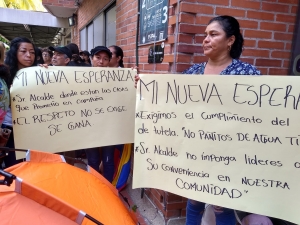 MI NUEVA ESPERANZA
• Sr Alcalde donde estan las casas
que Prometió en campaña
• EL RESPETO NO SE EXIGE
SE GANA
MI NUEVA ESPERA
• EXIGIMOS EL CUMPLIMIENTO DEL
de tutela. "NO PAÑITOS DE AGUA TI
• Sr. Alcalde no imponga lideres a
Su conveniencia en NUESTRA
COMUNIDAD"